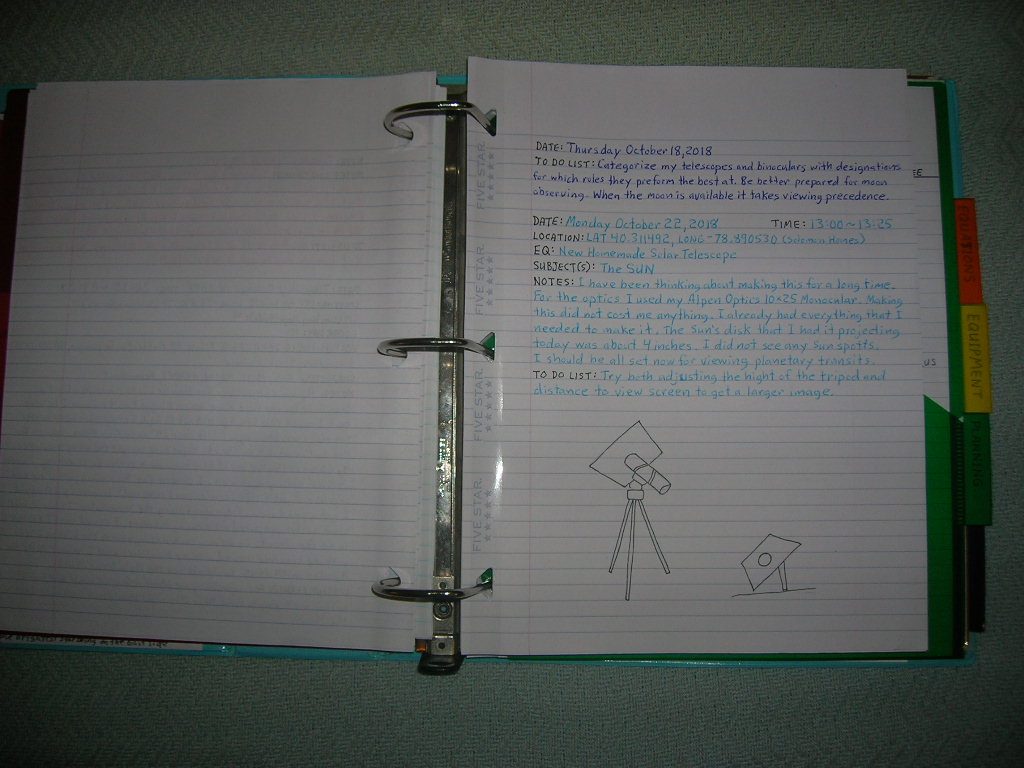 DATE: Thursday October 18, 2018
TO DO LIST: Categorize my telescopes and binoculars with designations
for which rules they preform the best at. Be better prepared for moon
observing. When the moon is available it takes viewing precedence.
DATE: Monday October 22, 2018 TIME: 13:00~13:25
LOCATION: LAT 40.311492, LONG -78.890530 (Solomon Homes)
EQ: New Homemade Solar Telescope
SUBJECT(S): The SUN
NOTES: I have been thinking about making this for a long time.
For the optics I used my Alpen Optics 10x25 Monocular. Making
this did not cost me anything. I already had everything that I
needed to make it. The Sun's disk that I had it projecting
today was about 4 inches. I did not see any Sun spotts.
I should be all set now for viewing planetary transits.
TO DO LIST: Try both adjusting the hight of the tripod and
distance to view screen to get a larger image.
FIVE STAR
FIVE STAR
FIVE STAR
FIVE STAR
EQUATIONS
EQUIPMENT
PLANNING
EE
US